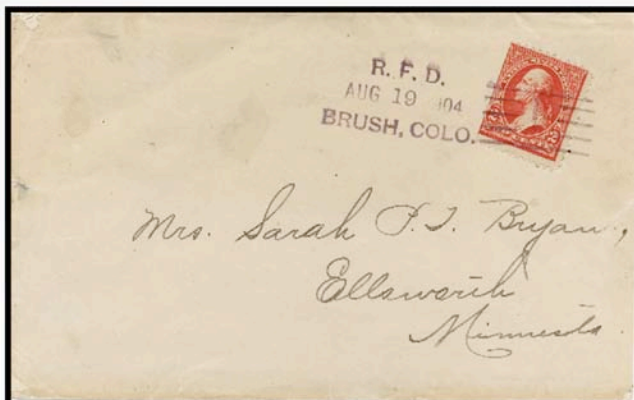 R. F. D.
AUG 19 '04
BRUSH, COLO.
Mrs. Sarah P. T. Bryan,
Ellsworth
Minnesota.